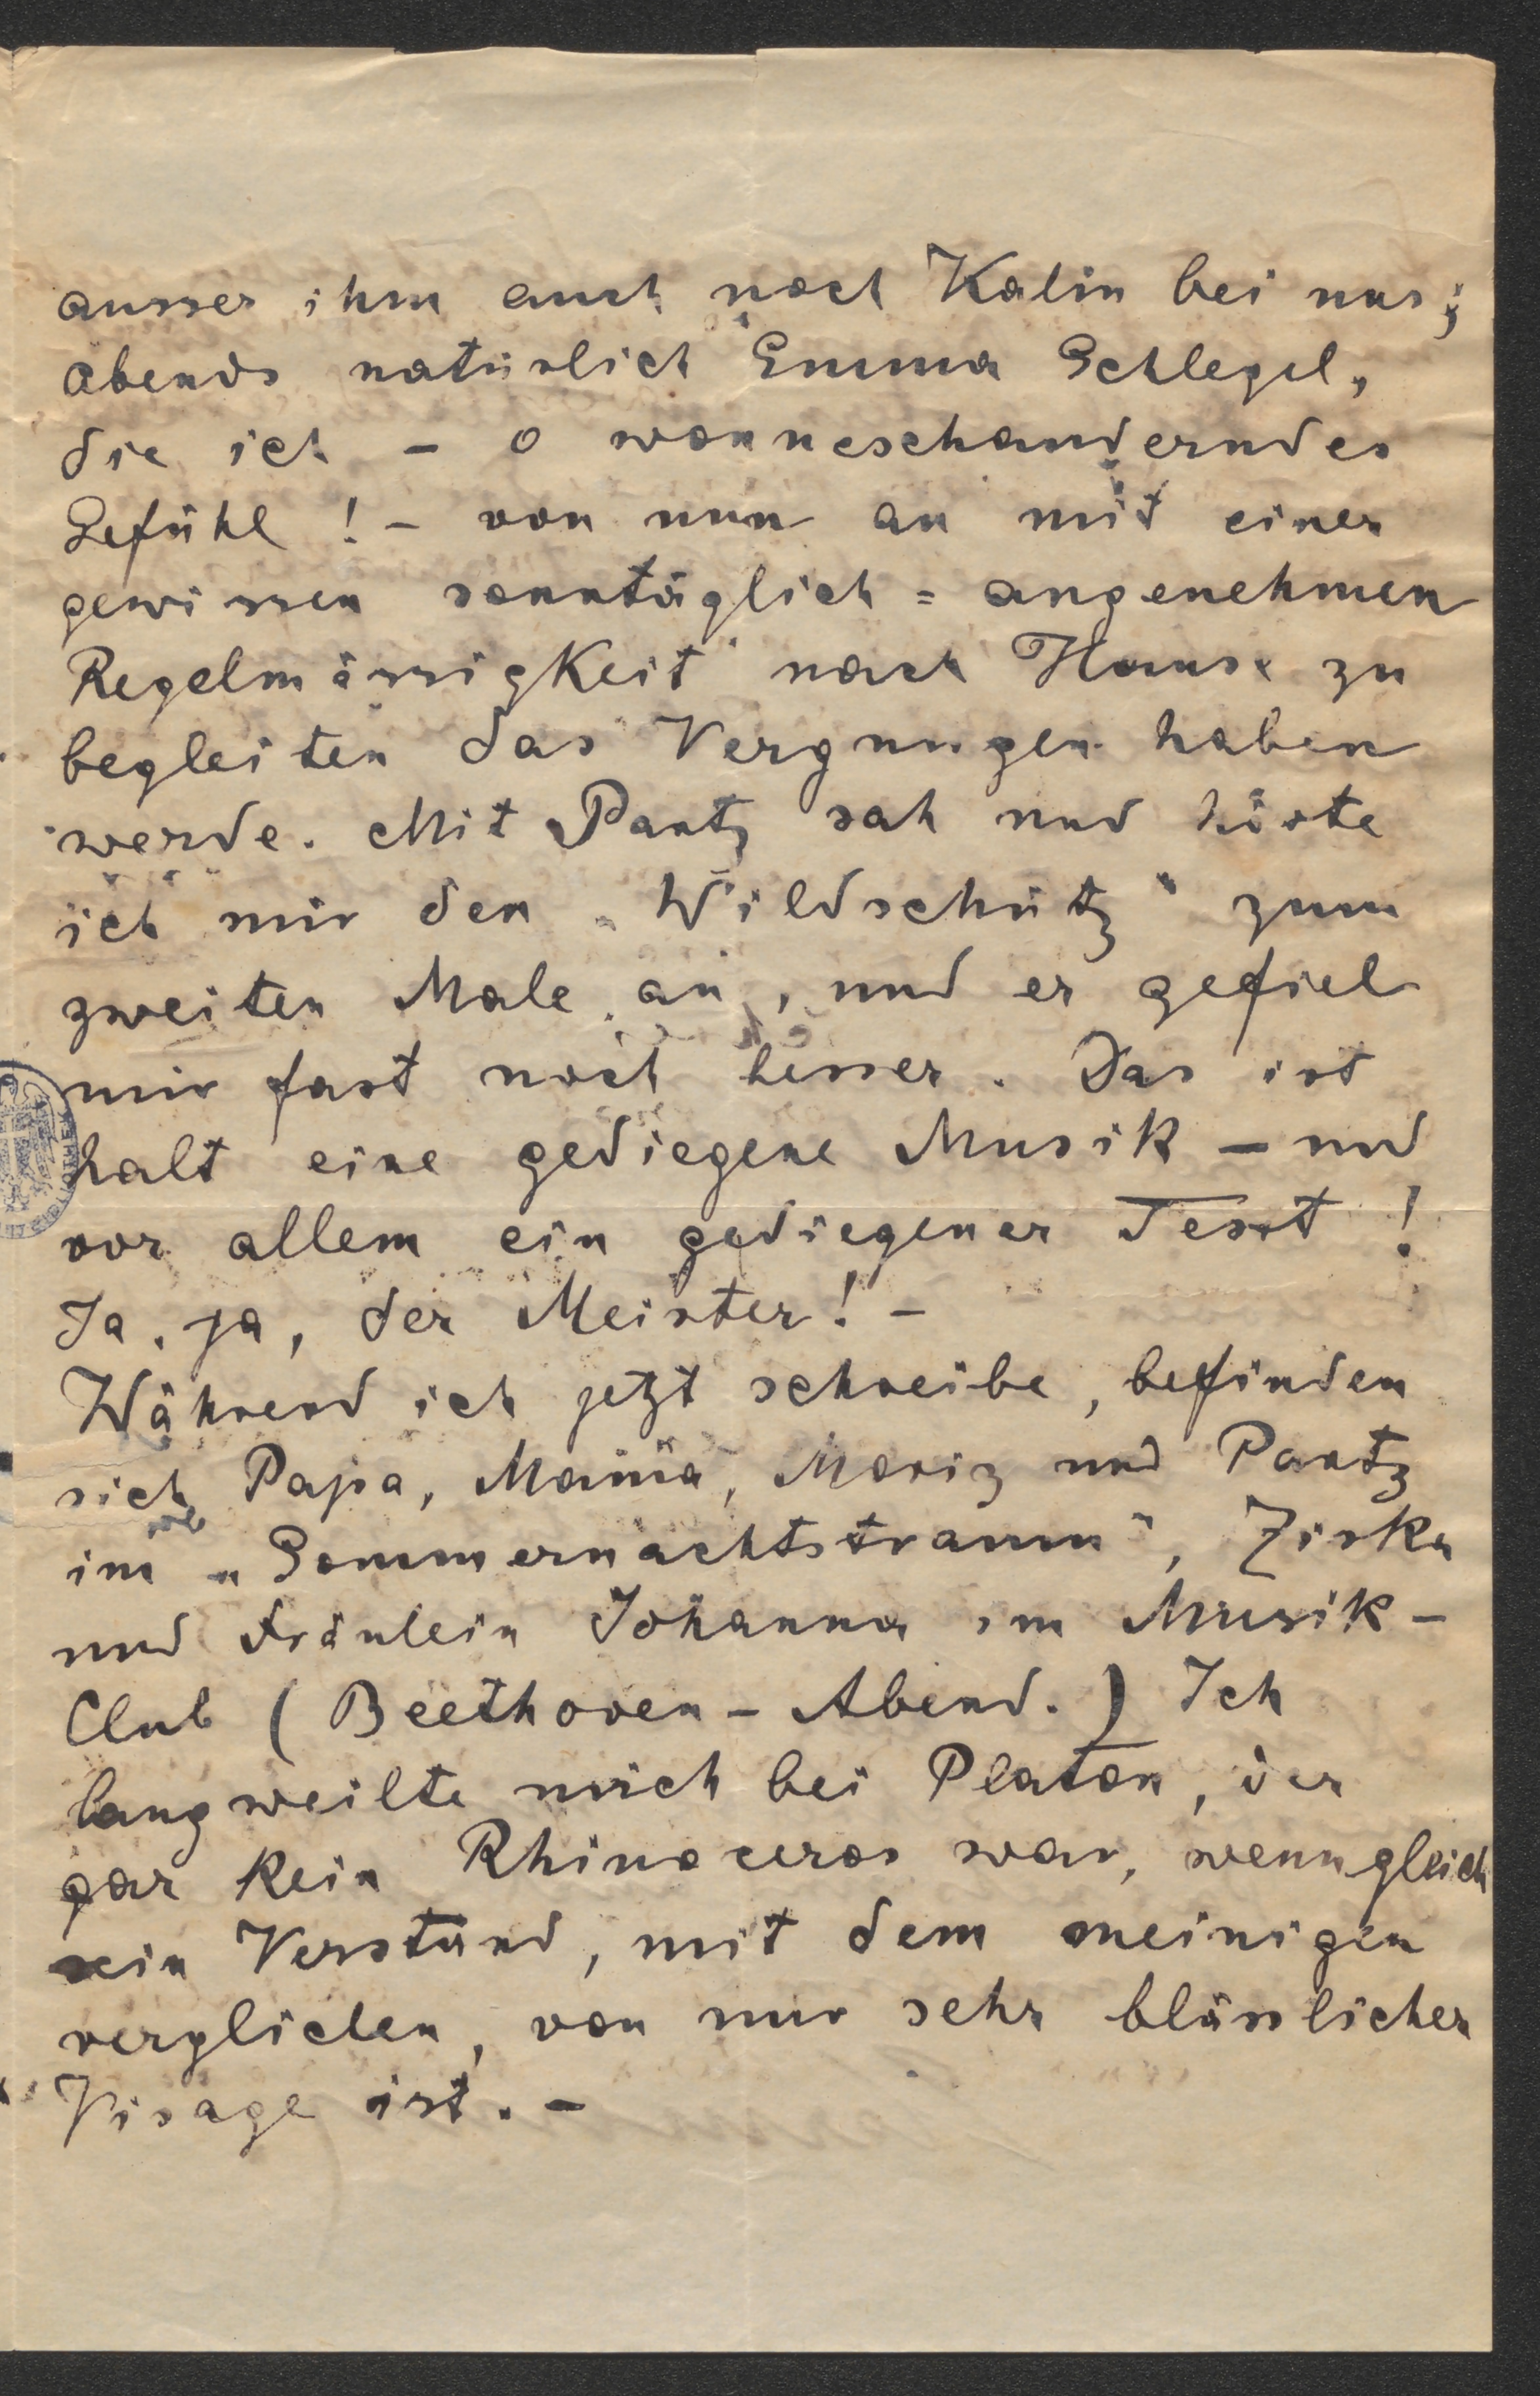 ausser ihm auch noch Kalin bei uns;
abends natürlich Emma Schlegel,
die ich – o wonneschauderndes
Gefühl! – von nun an mit einer
gewissen sonntäglich = angenehmen
Regelmässigkeit nach Hause zu
begleiten das Vergnügen haben
werde. Mit Pantz sah und hörte
ich mir den „Wildschütz“ zum
zweiten Male an, und er gefiel
mir fast noch besser. Das ist
halt eine gediegene Musik – und
vor allem ein gediegener Text!
Ja, ja, der Meister! –
Während ich jetzt schreibe, befinden
sich Papa, Mama, Moriz und Pantz
im „Sommernachtstraum“, Ziska
und Fräulein Johanna im Musik-
Club (Beethoven-Abend.) Ich
langweilte mich bei Platon, der
gar kein Rhinoceros war, wenngleich
sein Verstand, mit dem meinigen
verglichen, von nur sehr blässlicher
Visage ist. –